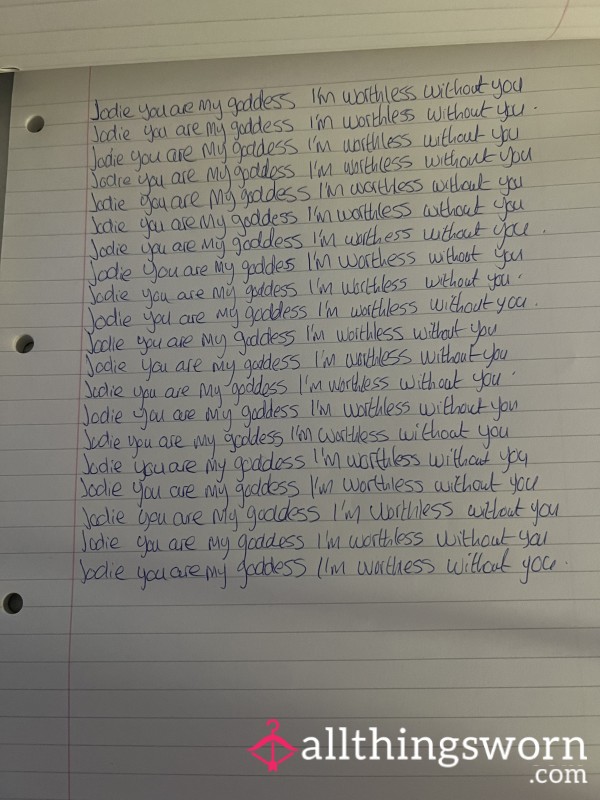 Jodie you are my goddess I'm worthless without you
Jodie you are my goddess I'm worthless without you.
Jodie you are my goddess I'm worthless without you
Jodie you are my goddess I'm worthless without you
Jodie you are my goddess I'm worthless without you
Jodie you are my goddess I'm worthless without you
Jodie you are my goddess I'm worthess without you.
Jodie you are my goddes I'm worthess without you
Jodie you are my goddess I'm worthless without you.
Jodie you are my goddess I'm worthless without you.
Jodie you are my goddess I'm worthless without you
Jodie you are my goddess I'm worthless without you
Jodie you are my goddess I'm worthless without you.
Jodie you are my goddess I'm worthless without you
Jodie you are my goddess I'm worthless without you
Jodie you are my goddess I'm worthless without you
Jodie you are my goddess I'm worthless without you
Jodie you are my goddess I'm worthless without you
Jodie you are my goddess I'm worthless without you
Jodie you are my goddess I'm worthess without you.
allthingsworn
.com